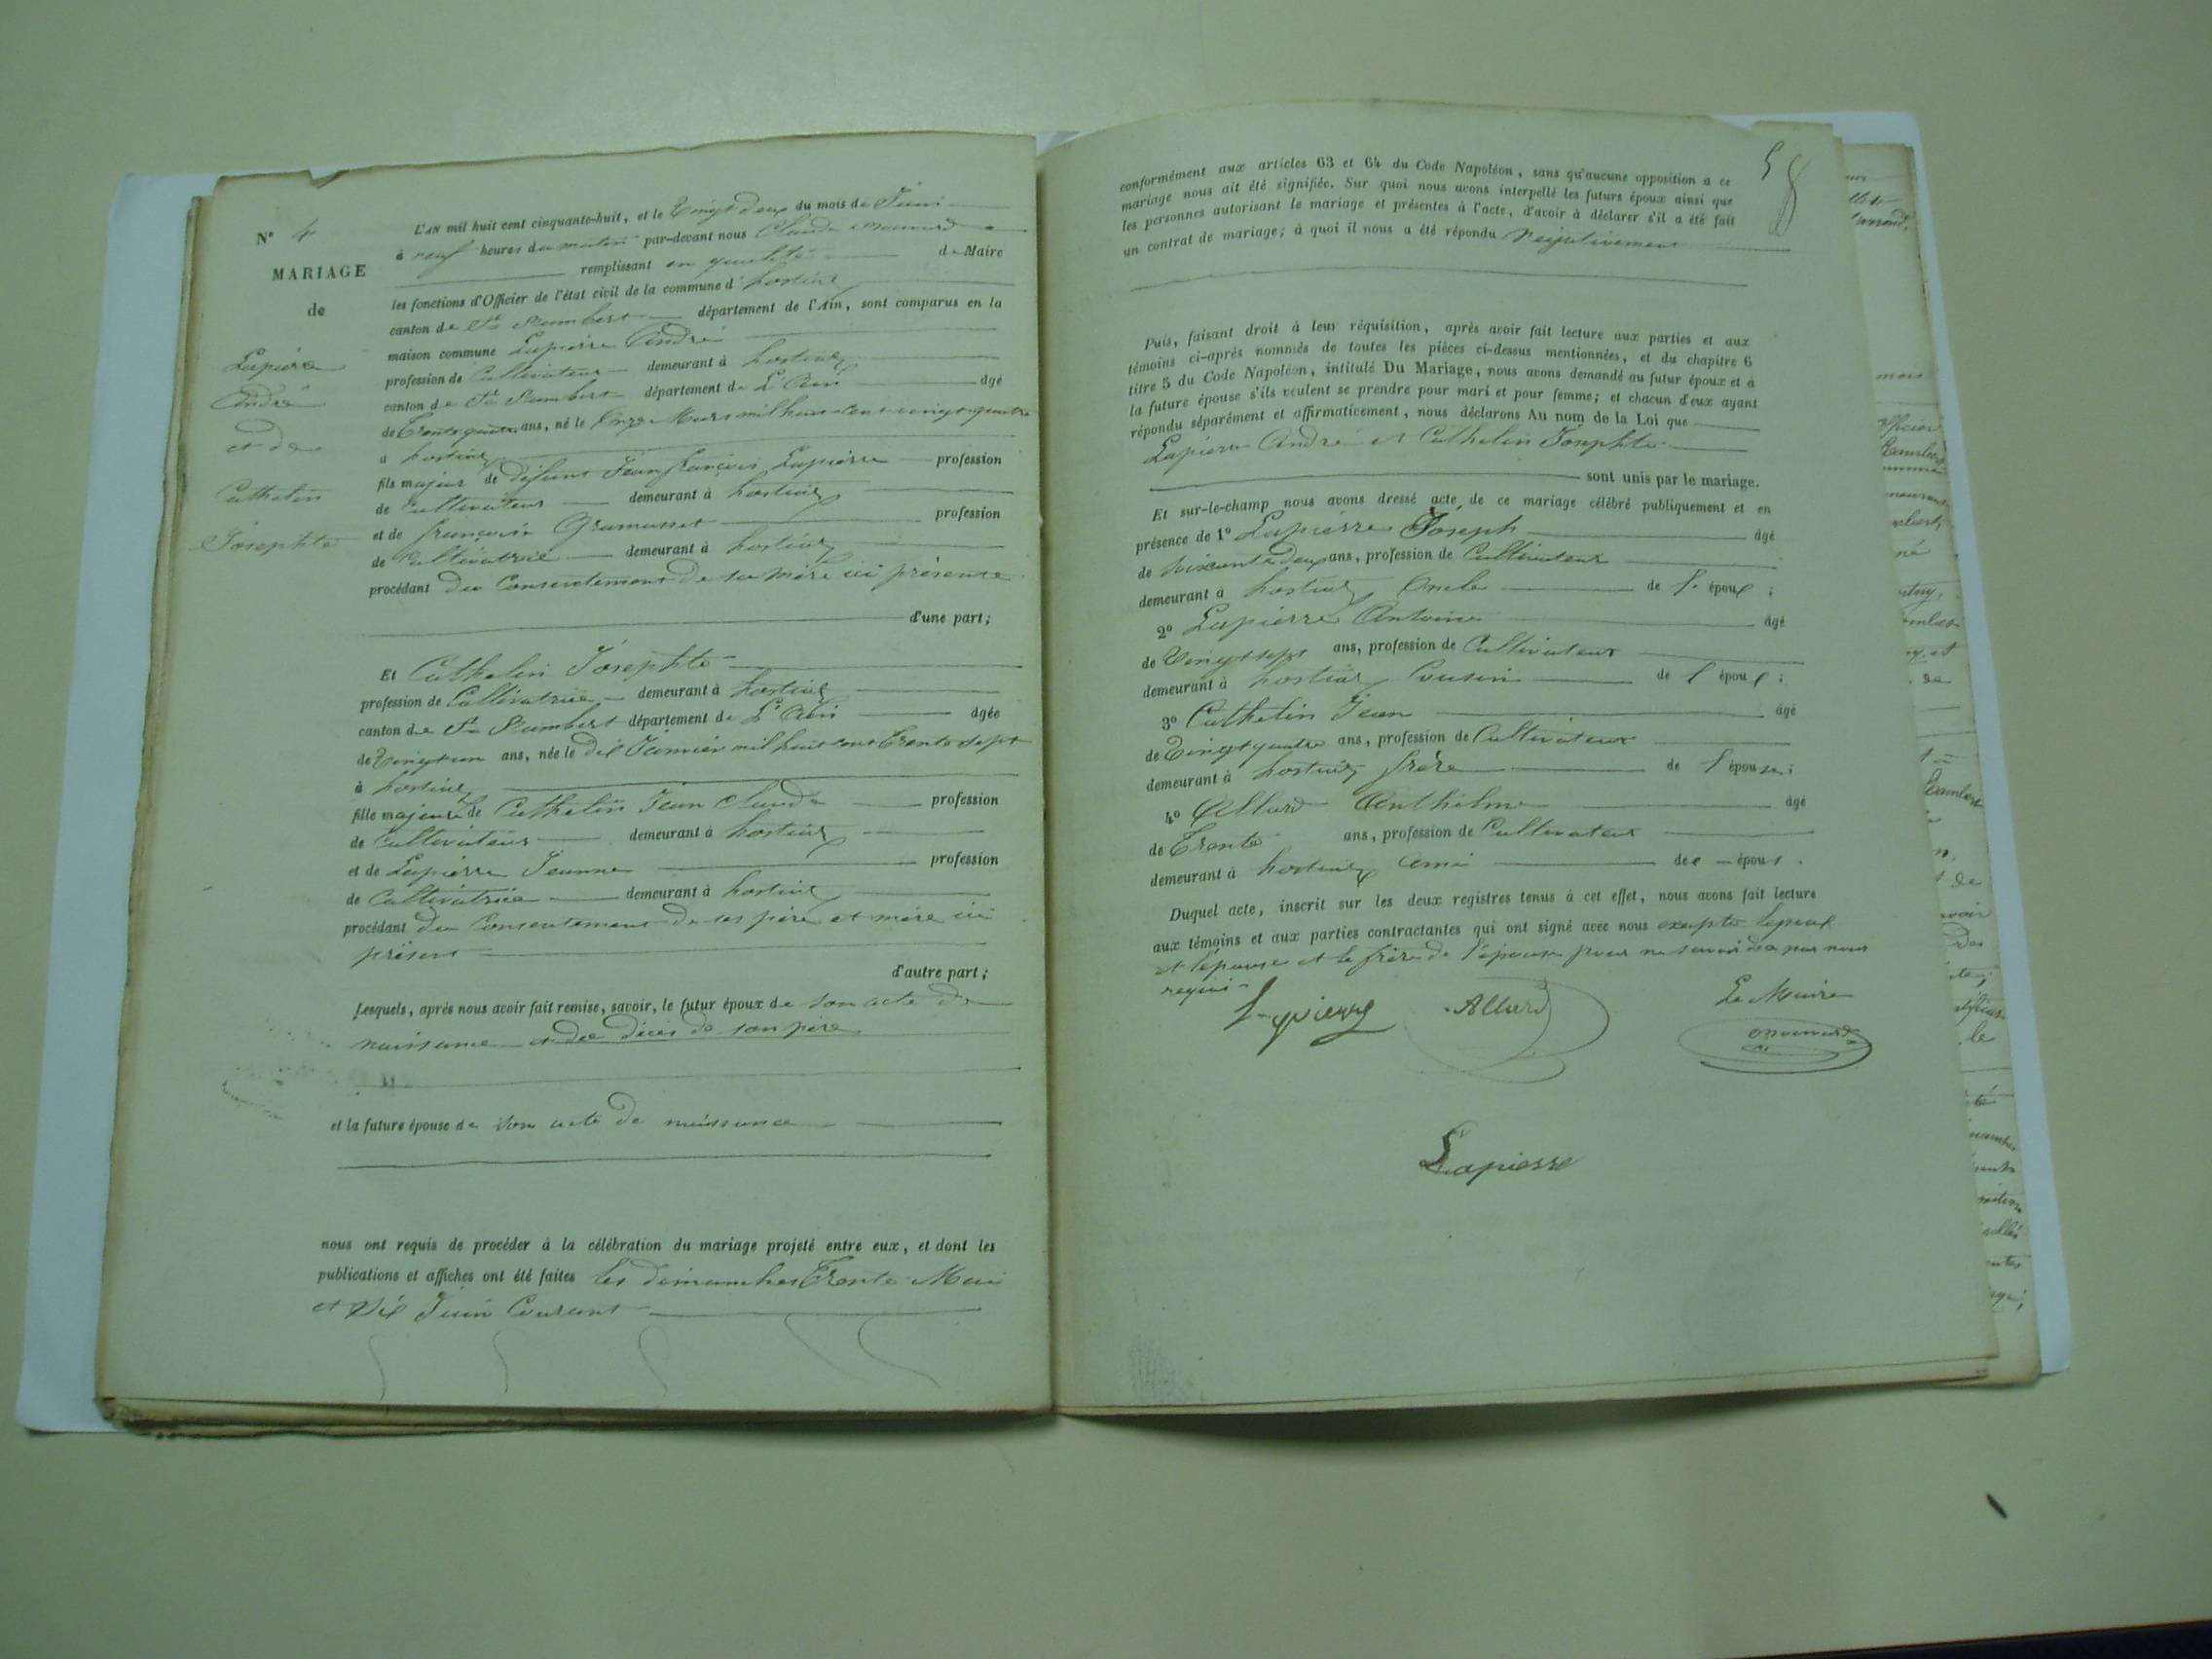 N° 4
MARIAGE
de
Lapierre
André
et de
Cathelin
Josephte
L'AN mil huit cent cinquante-huit, et le Vingt deux du mois de Juin
à neuf heures du matin par-devant nous Claude
remplissant en qualité de Maire
les fonctions d'Officier de l'état civil de la commune d' hostiaz
canton de St Rambert département de l'Ain, sont comparus en la
maison commune Lapierre André
profession de Cultivateur demeurant à hostiaz
canton de St Rambert département de L'Ain âgé
de trente quatre ans, né le Onze Mars mil huit cent vingt quatre
à hostiaz
fils majeur de défunt Jean françois Lapierre profession
de Cultivateur demeurant à hostiaz
et de françoise Gramusset profession
de Cultivatrice demeurant à hostiaz
procédant du Consentement de sa mère ici présente
d'une part;
Et Cathelin Josephte
profession de Cultivatrice demeurant à hostiaz
canton de St Rambert département de L'Ain âgée
de Vingt un ans, née le dix Janvier mil huit cent trente sept
à hostiaz
fille majeure de Cathelin Jean Claude profession
de Cultivateur demeurant à hostiaz
et de Lapierre Jeanne profession
de Cultivatrice demeurant à hostiaz
procédant du Consentement de ses père et mère ici
présent
d'autre part;
Lesquels, après nous avoir fait remise, savoir, le futur époux de son acte de
naissance et de décès de son père
et la future épouse de son acte de naissance
nous ont requis de procéder à la célébration du mariage projeté entre eux, et dont les
publications et affiches ont été faites les dimanches Trente Mai
et Six Juin Courant
58
conformément aux articles 63 et 64 du Code Napoléon, sans qu'aucune opposition à ce
mariage nous ait été signifiée. Sur quoi nous avons interpellé les futurs époux ainsi que
les personnes autorisant le mariage et présentes à l'acte, d'avoir à déclarer s'il a été fait
un contrat de mariage; à quoi il nous a été répondu Negativement
Puis, faisant droit à leur réquisition, après avoir fait lecture aux parties et aux
témoins ci-après nommés de toutes les pièces ci-dessus mentionnées, et du chapitre 6
titre 5 du Code Napoléon, intitulé Du Mariage, nous avons demandé au futur époux et à
la future épouse s'ils veulent se prendre pour mari et pour femme; et chacun d'eux ayant
répondu séparément et affirmativement, nous déclarons Au nom de la Loi que
Lapierre André et Cathelin Josephte
sont unis par le mariage.
Et sur-le-champ nous avons dressé acte de ce mariage célébré publiquement et en
présence de 1° Lapierre Joseph âgé
de soixante deux ans, profession de Cultivateur
demeurant à hostiaz Oncle de l' époux ;
2° Lapierre Antoine âgé
de Vingt sept ans, profession de Cultivateur
demeurant à hostiaz Cousin de l' époux ;
3° Cathelin Jean âgé
de Vingt quatre ans, profession de Cultivateur
demeurant à hostiaz frère de l'épouse ;
4° Allard Anthelme âgé
de Trente ans, profession de Cultivateur
demeurant à hostiaz ami des épous .
Duquel acte, inscrit sur les deux registres tenus à cet effet, nous avons fait lecture
aux témoins et aux parties contractantes qui ont signé avec nous excepté lepoux
et lépouse et le frère de l'épouse pour ne savoir de ce par nous
requis
Lapierre
Allard
Le Maire
Lapierre